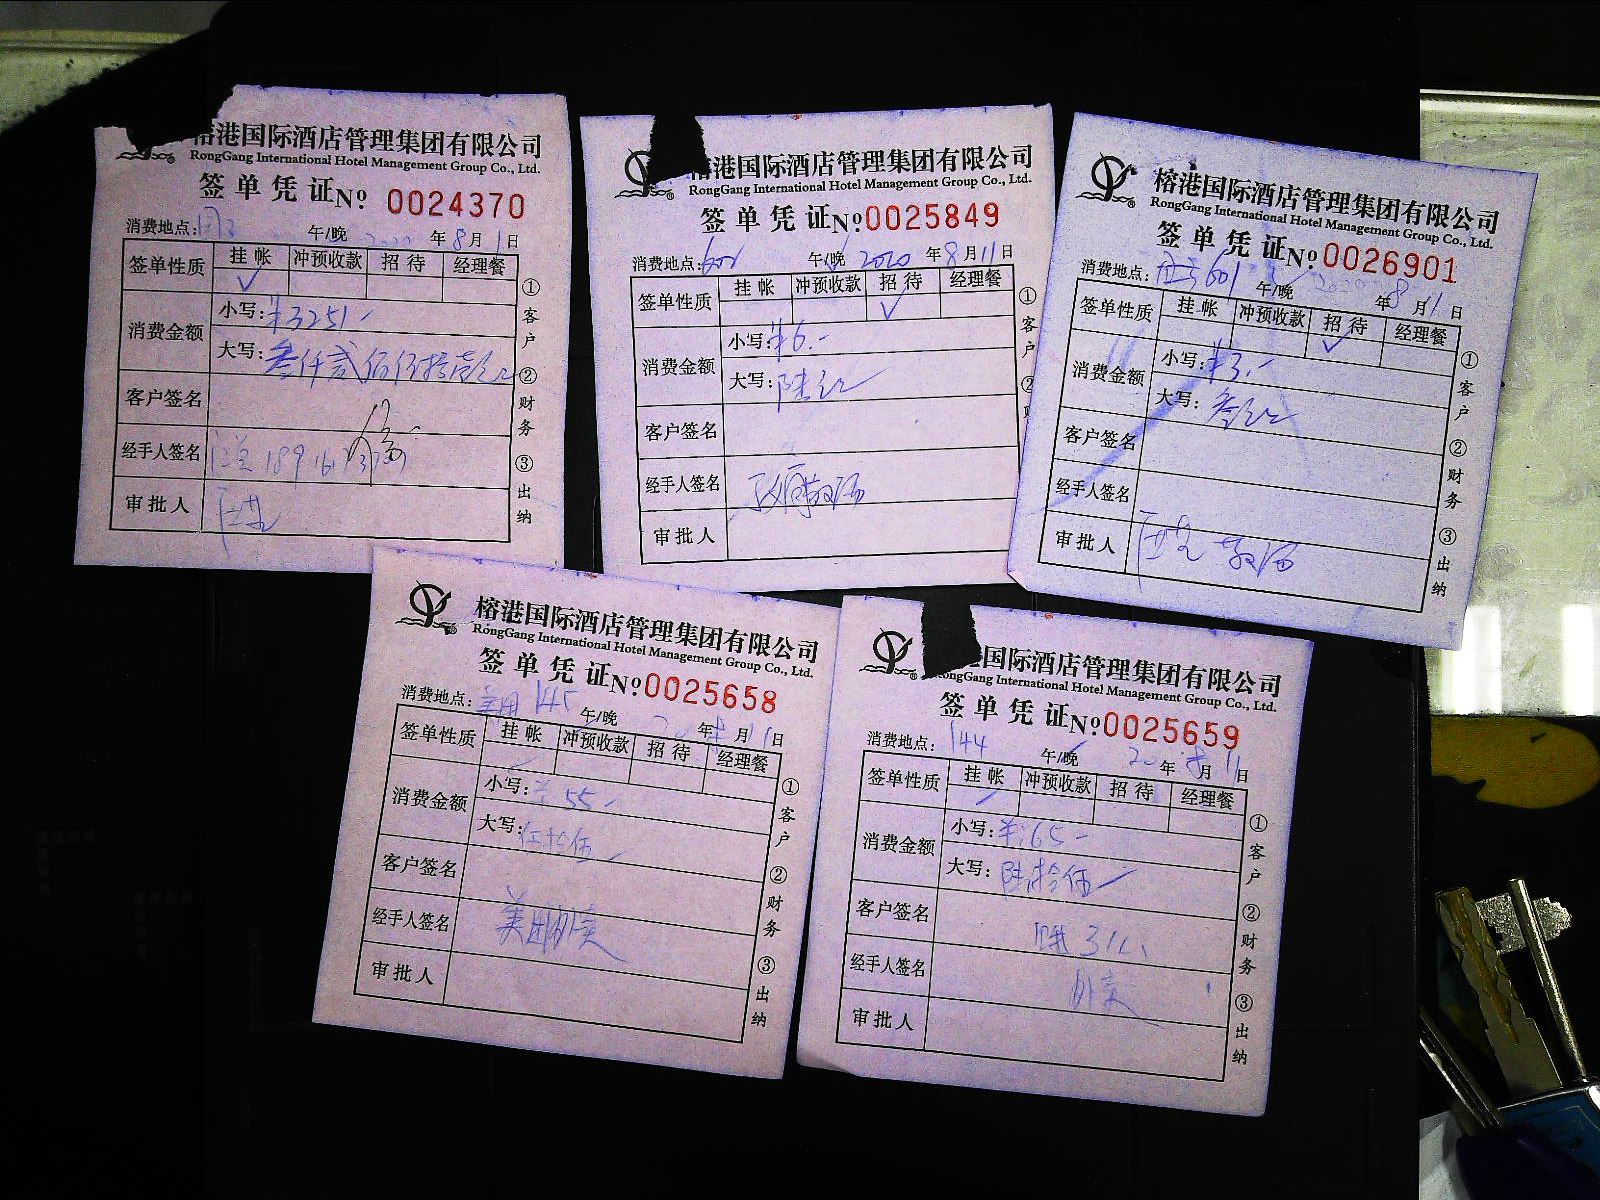 榕港国际酒店管理集团有限公司
RongGang International Hotel Management Group Co., Ltd.
签单凭证№ 0024370
消费地点: 午/晚 2020 年 8 月 1 日
签单性质 挂帐 冲预收款 招待 经理餐
✓
消费金额 小写: ¥3251-
大写: 叁仟贰佰伍拾壹元
客户签名
经手人签名
审批人
①客户 ②财务 ③出纳
榕港国际酒店管理集团有限公司
RongGang International Hotel Management Group Co., Ltd.
签单凭证№0025849
消费地点: 601 午/晚 2020 年 8 月 11 日
签单性质 挂帐 冲预收款 招待 经理餐
✓
消费金额 小写: ¥6.-
大写: 陆元
客户签名
经手人签名
审批人
①客户 ②财
榕港国际酒店管理集团有限公司
RongGang International Hotel Management Group Co., Ltd.
签单凭证№0026901
消费地点: 601 午/晚 2020 年 8 月 1 日
签单性质 挂帐 冲预收款 招待 经理餐
✓
消费金额 小写: ¥3.-
大写: 叁元
客户签名
经手人签名
审批人
①客户 ②财务 ③出纳
榕港国际酒店管理集团有限公司
RongGang International Hotel Management Group Co., Ltd.
签单凭证№0025658
消费地点: 美团 145 午/晚 年 月 11 日
签单性质 挂帐 冲预收款 招待 经理餐
消费金额 小写: ¥55-
大写: 伍拾伍
客户签名
经手人签名 美团外卖
审批人
①客户 ②财务 ③出纳
榕港国际酒店管理集团有限公司
RongGang International Hotel Management Group Co., Ltd.
签单凭证№0025659
消费地点: 144 午/晚 20 年 8 月 11 日
签单性质 挂帐 冲预收款 招待 经理餐
消费金额 小写: ¥:65-
大写: 陆拾伍
客户签名
经手人签名 外卖
审批人
①客户 ②财务 ③出纳